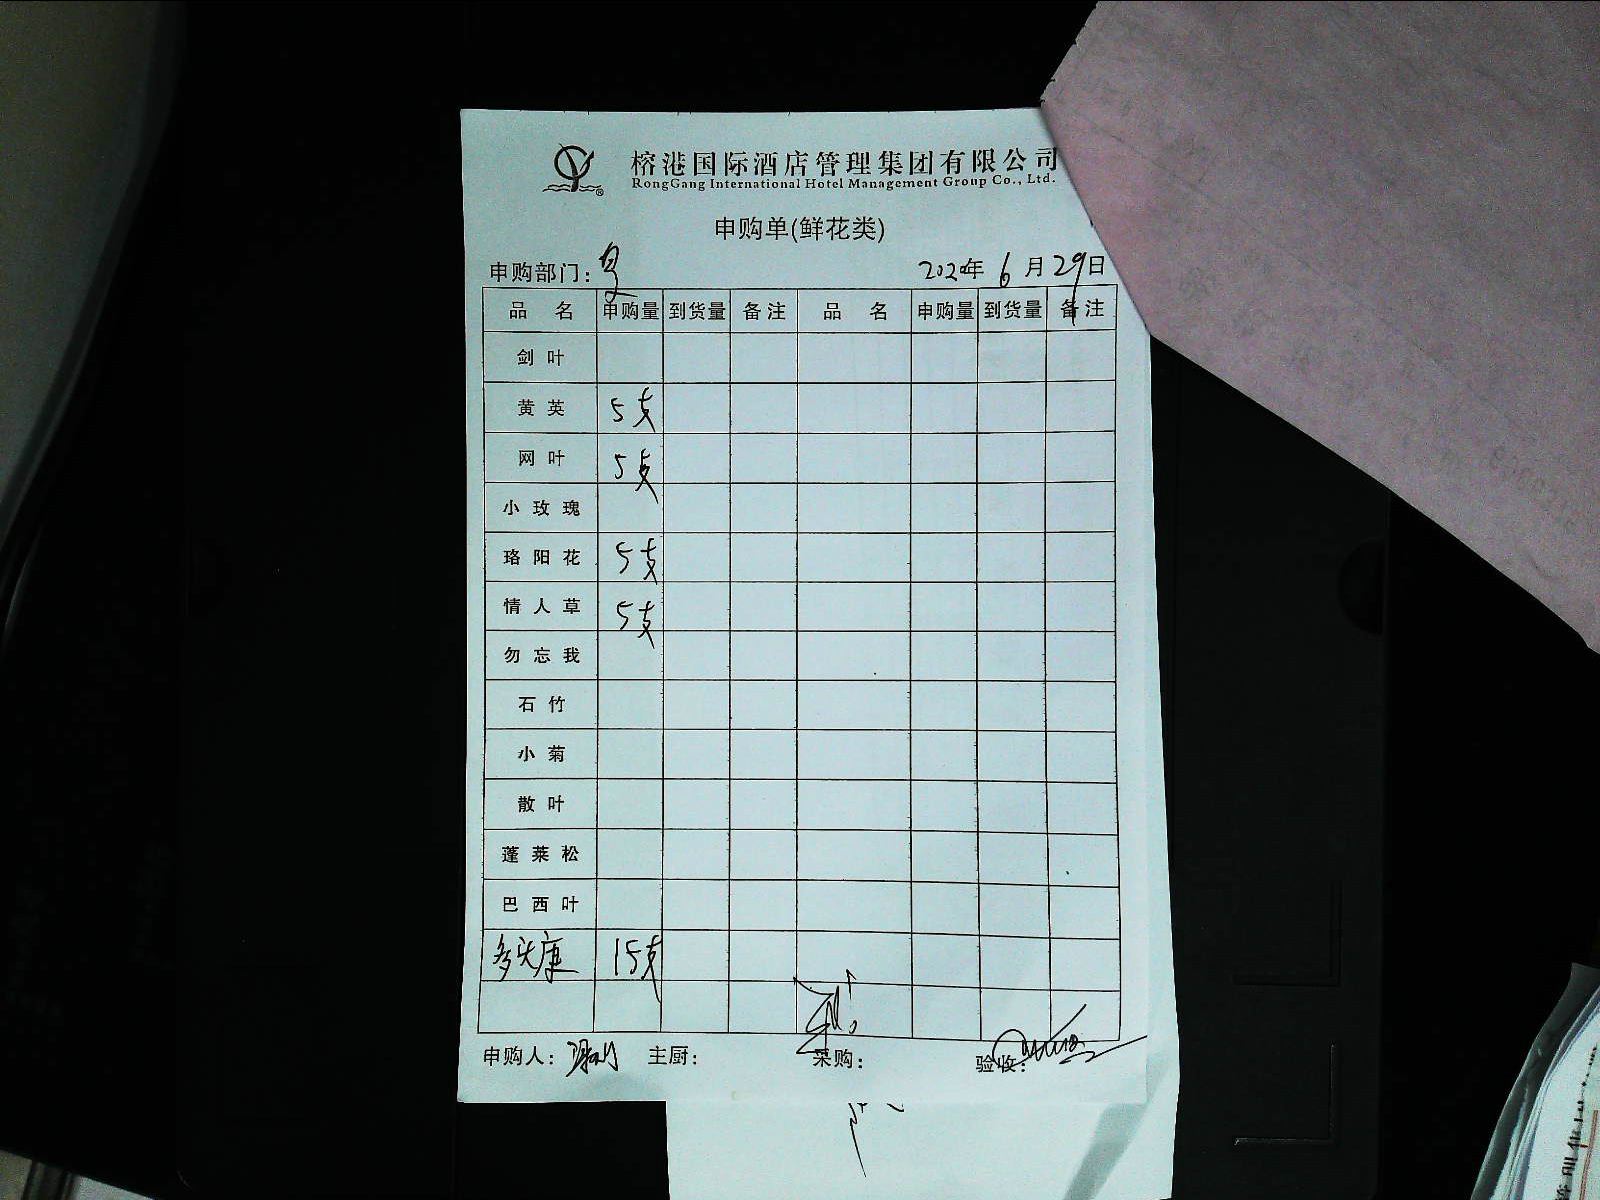 榕港国际酒店管理集团有限公司
RongGang International Hotel Management Group Co., Ltd.
申购单(鲜花类)
申购部门: 2020年 6月29日
品名 申购量 到货量 备注 品名 申购量 到货量 备注
剑叶
黄英 5支
网叶 5支
小玫瑰
珞阳花 5支
情人草 5支
勿忘我
石竹
小菊
散叶
蓬莱松
巴西叶
多头康 15支
申购人: 主厨: 采购: 验收: